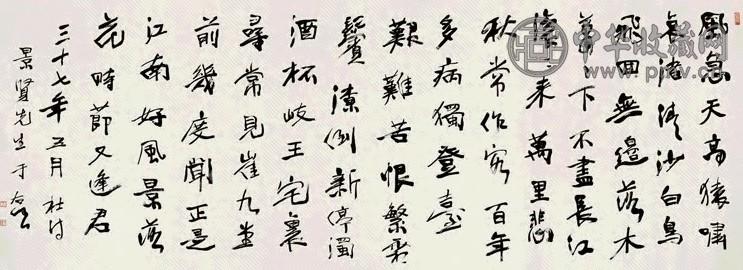 風急天高猿嘯
哀渚清沙白鳥
飛回無邊落木
蕭々下不盡長江
滾々來萬里悲
秋常作客百年
多病獨登臺
艱難苦恨繁霜
鬢潦倒新停濁
酒杯岐王宅裏
尋常見崔九堂
前幾度聞正是
江南好風景落
花時節又逢君
三十七年五月 杜詩
景賢先生 于右任
中华收藏网